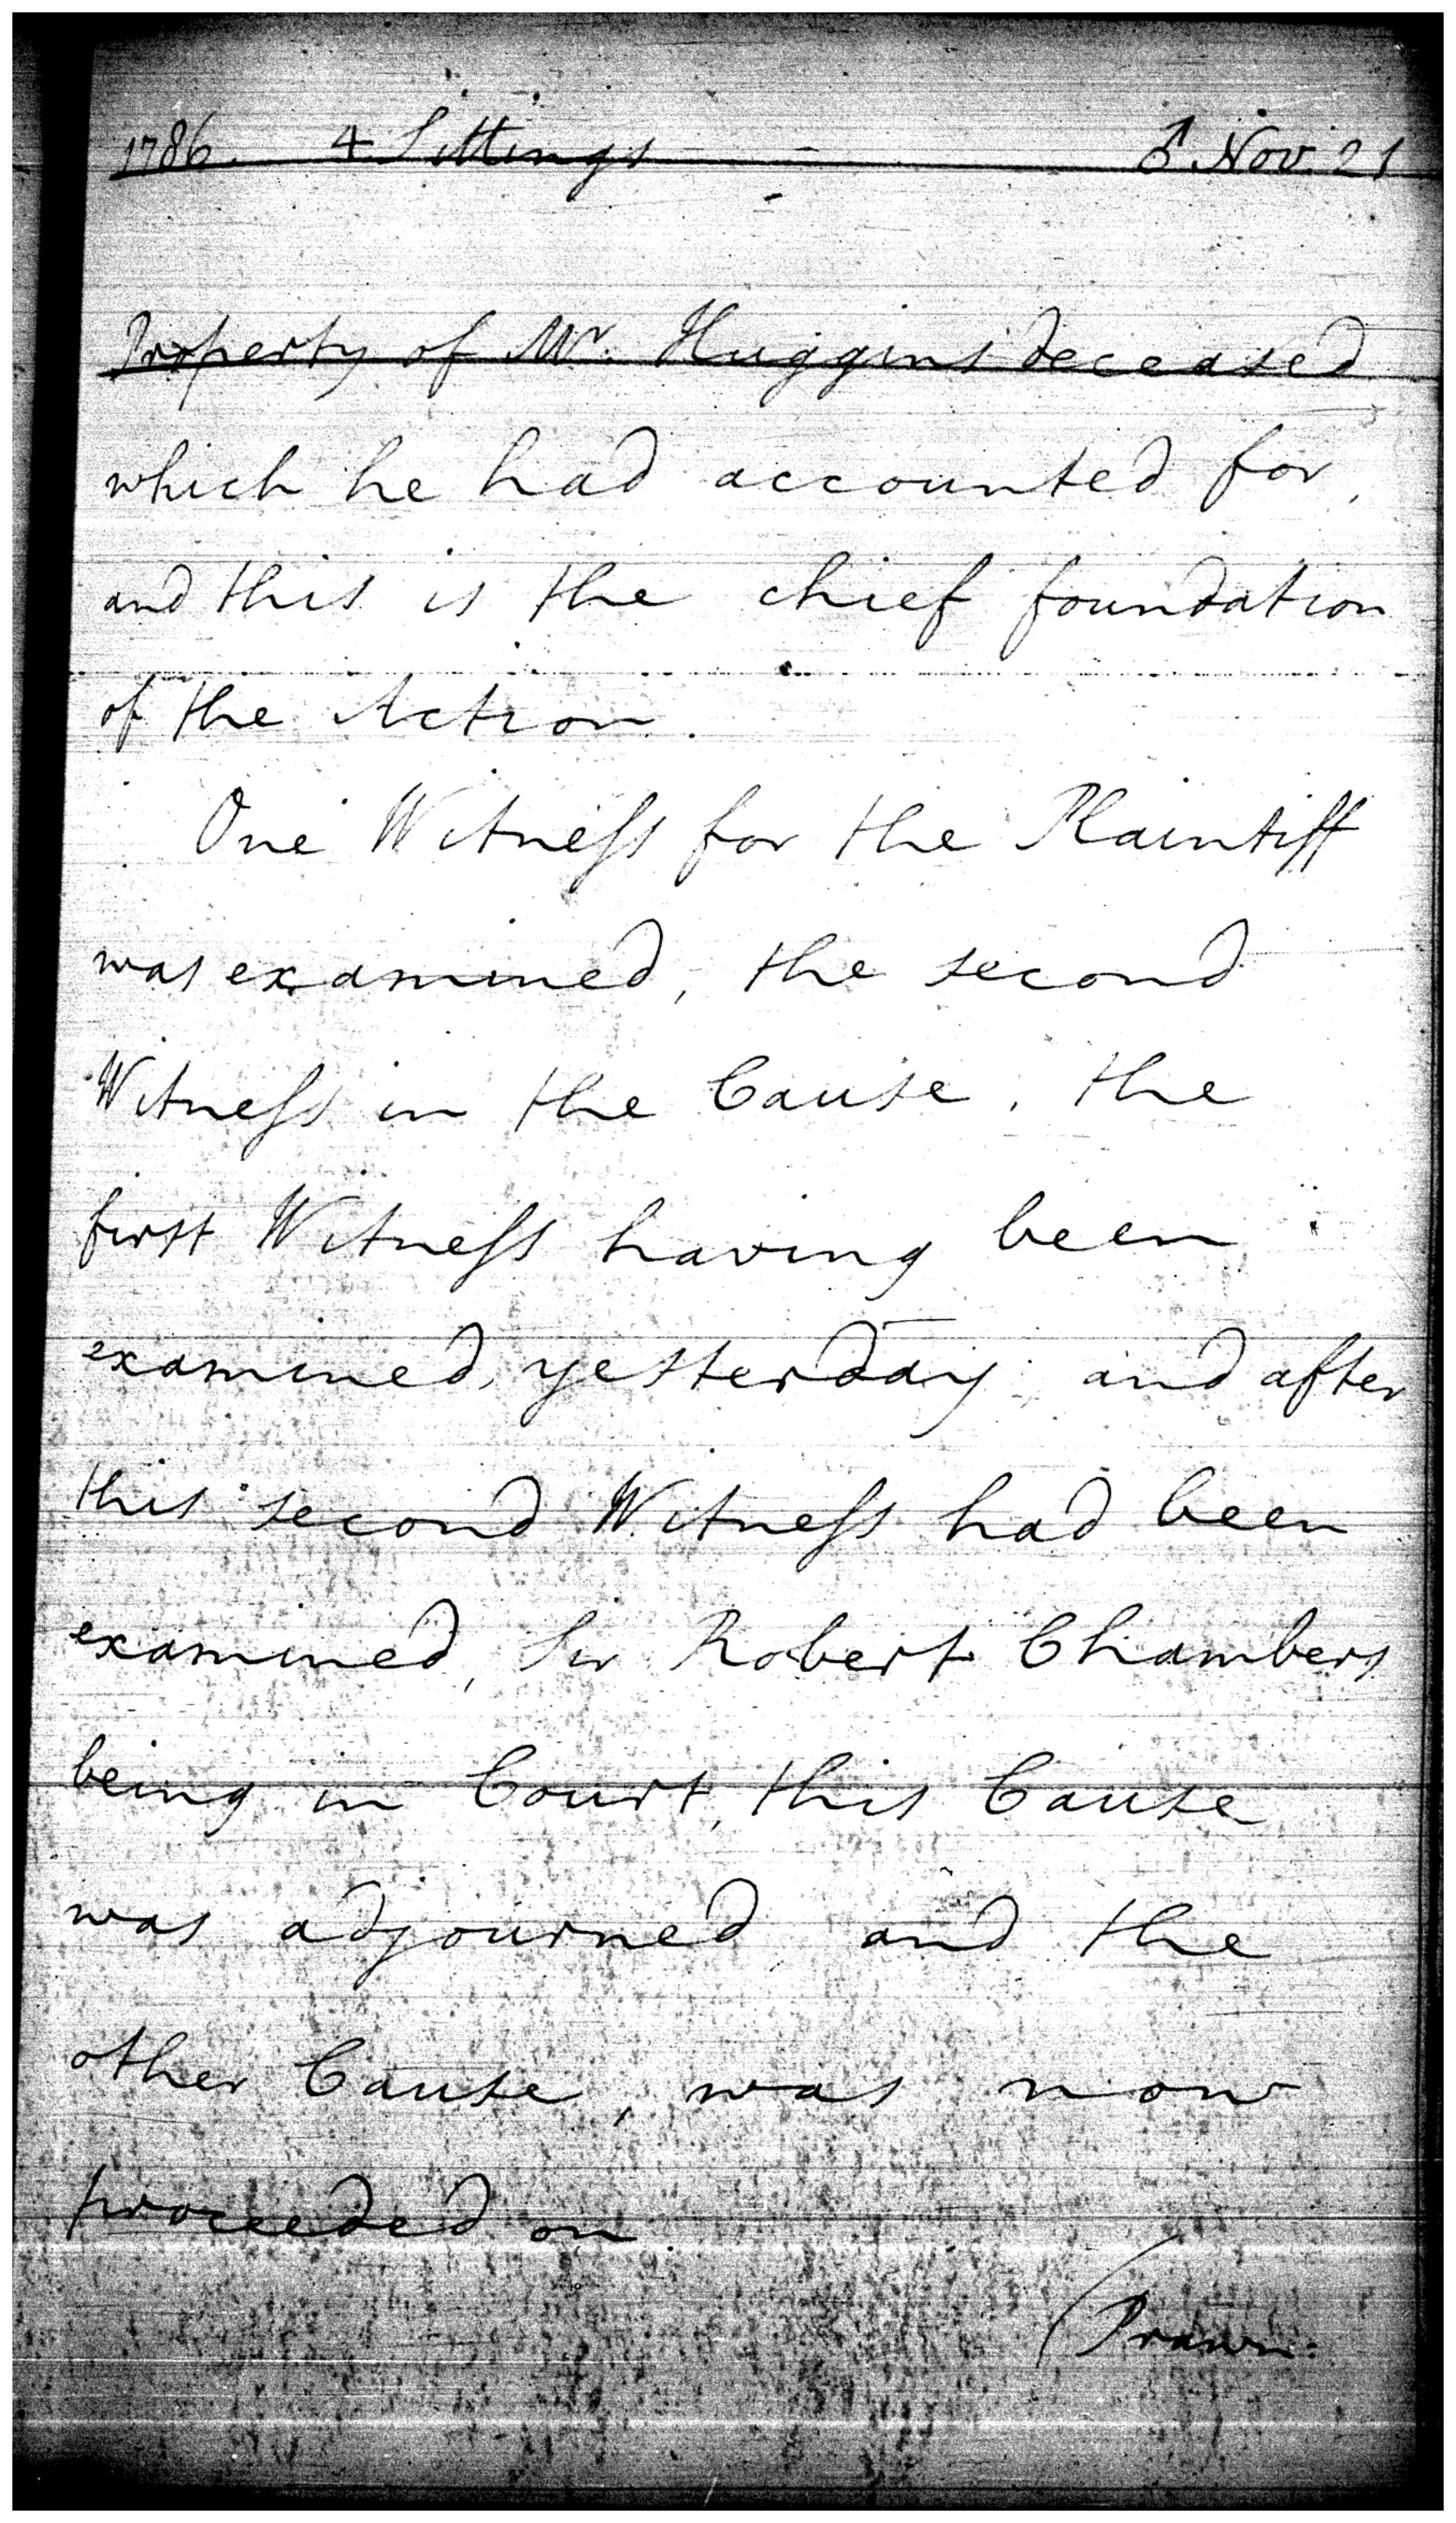 1786. 4 Sittings ♂ Nov. 21
Property of Mr. Huggins deceased
which he had accounted for,
and this is the chief foundation
of the Action.
One Witneſs for the Plaintiff
was examined, the second
Witneſs in the Cause, the
first Witneſs having been
examined, yesterday and after
this second Witneſs had been
examined, Sir Robert Chambers
being in Court, this Cause
was adjourned and the
other Cause, was now
proceeded on.
(Prawn: